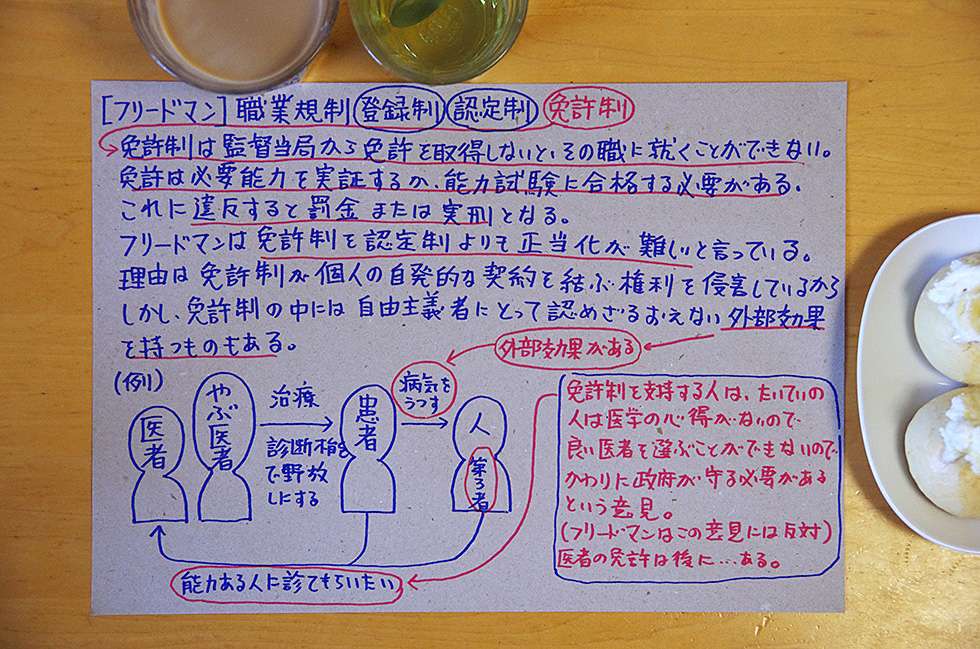 [フリードマン] 職業規制 登録制 認定制 免許制
免許制は監督当局から免許を取得しないと、その職に就くことができない。
免許は必要能力を実証するか、能力試験に合格する必要がある。
これに違反すると罰金または実刑となる。
フリードマンは免許制を認定制よりも正当化が難しいと言っている。
理由は免許制が個人の自発的な契約を結ぶ権利を侵害しているから
しかし、免許制の中には自由主義者にとって認めざるおえない外部効果
を持つものもある。
外部効果がある
(例)
医者
やぶ医者
治療
診断
で野放
しにする
患者
病気を
うつす
人
第3者
能力ある人に診てもらいたい
免許制を支持する人は、たいていの
人は医学の心得がないので
良い医者を選ぶことができないので
かわりに政府が守る必要がある
という意見。
(フリードマンはこの意見には反対)
医者の免許は後に…ある。